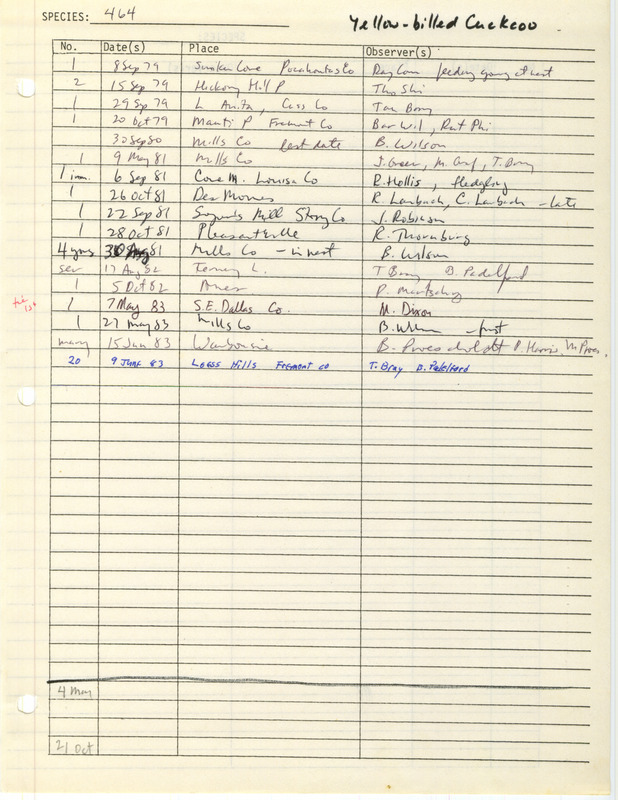 SPECIES: 464 Yellow-billed Cuckoo
No. Date(s) Place Observer(s)
1 8 Sep 79 Sunken Cove Pocahontas Co feeding young at nest
2 15 Sep 79 Hickory Hill P
1 29 Sep 79 L Anita, Cass Co
1 20 Oct 79 Manti P Fremont Co Bar Wil, Rut Phi
30 Sep 80 Mills Co last date B. Wilson
1 9 May 81 Mills Co J. Green, M. Graf, T. Bray
1 imm. 6 Sep 81 Cone M. Louisa Co R. Hollis, fledgling
1 26 Oct 81 Des Moines R. Laubach, C. Laubach - late
1 22 Sep 81 Soper's Mill Story Co J. Robinson
1 28 Oct 81 Pleasantville R. Thornburg
4 yng 30 Aug 81 Mills Co - in nest B. Wilson
sev 17 Aug 82 T Bray B. Padelford
1 5 Oct 82 Ames P. Martsching
1 7 May 83 S.E. Dallas Co. M. Dixon
1 27 May 83 Mills Co B. Wilson - first
many 15 Jun 83 Waubonsie B. Proescholdt
20 9 June 83 Loess Hills Fremont Co T. Bray B. Padelford
4 May
21 Oct